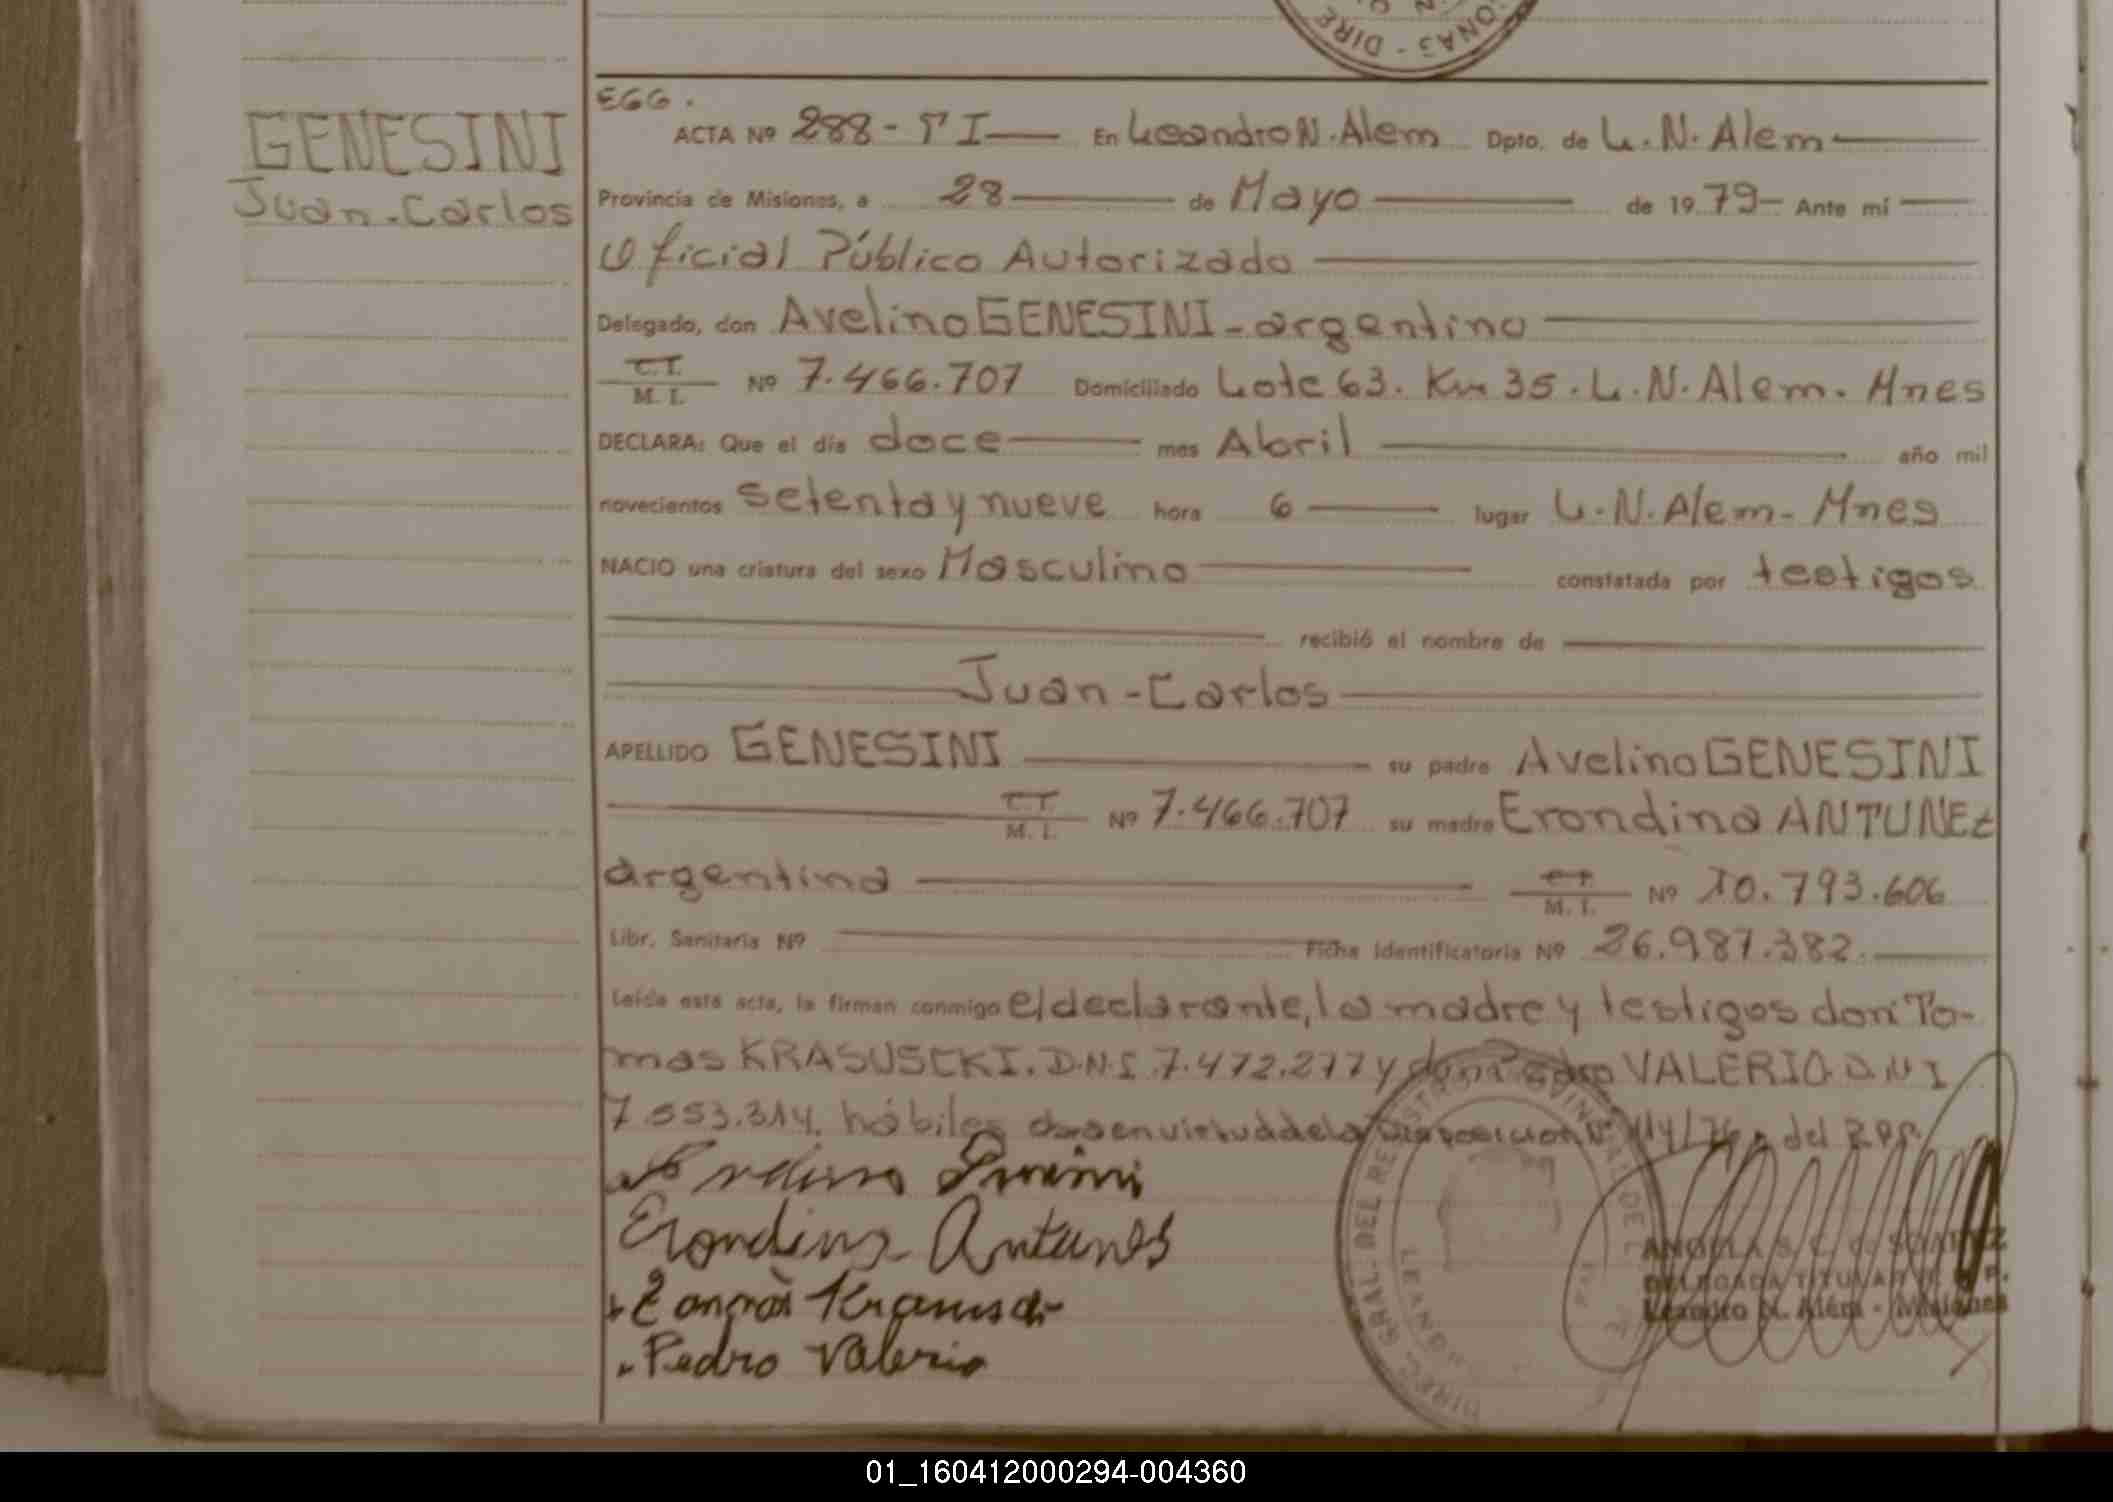 DIRE - SANO
EGG.
GENESINI
Juan-Carlos
ACTA Nº 288 - T I — En Leandro N. Alem Dpto. de L. N. Alem —
Provincia de Misiones, a 28 — de Mayo — de 19 79 — Ante mí —
Oficial Público Autorizado —
Delegado, don Avelino GENESINI - argentino —
C.I.
M. I. Nº 7.466.707 Domiciliado Lote 63. Km 35. L. N. Alem. Mnes
DECLARA: Que el día doce — mes Abril — año mil
novecientos setenta y nueve hora 6 — lugar L. N. Alem - Mnes
NACIO una criatura del sexo Masculino — constatada por testigos
— recibió el nombre de —
— Juan - Carlos —
APELLIDO GENESINI — su padre Avelino GENESINI
— C.I.
M. I. Nº 7.466.707 su madre Erondina ANTUNEZ
argentina — C.I.
M. I. Nº 10.793.606
Libr. Sanitaria Nº — Ficha Identificatoria Nº 26.987.382. —
Leída esta acta, la firman conmigo el declarante, la madre y testigos don To-
mas KRASUSCKI. D.N.I. 7.472.277 y don Pedro VALERIO. D.N.I
7.553.314. hábiles en virtud de la Disposición Nº 114/76 del R.P.P.
Erondina Antunes
Pedro Valerio
DIREC. GRAL. DEL REGISTRO PROVINCIAL DE L
LEANDRO
ANGELA S. C. C. SUAREZ
DELEGADA TITULAR R. P.
Leandro N. Além - Misiones
01_160412000294-004360